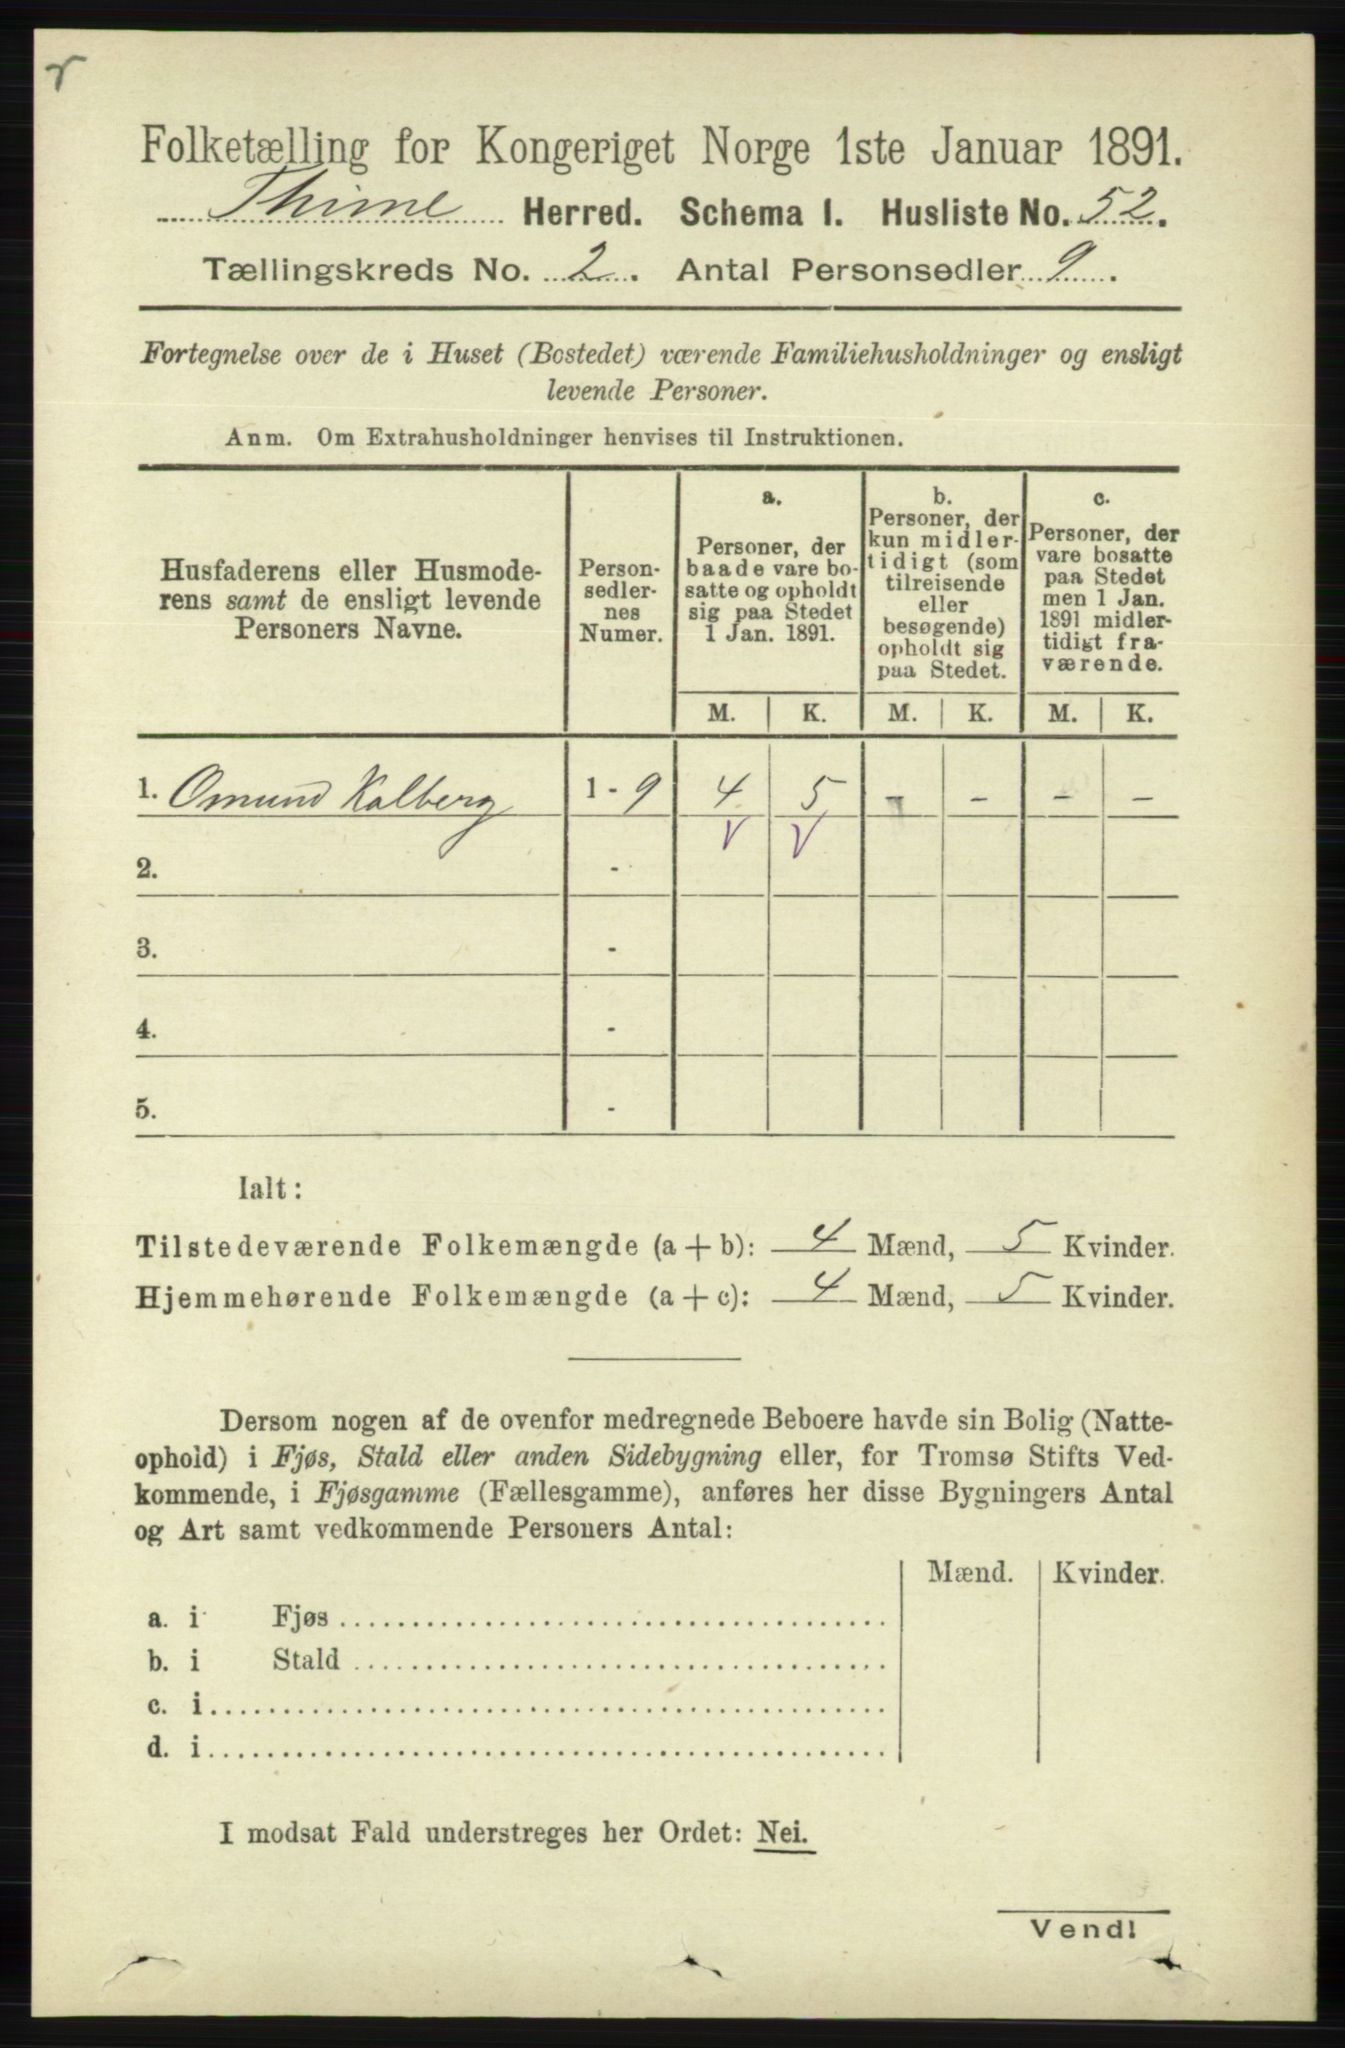 Folketælling for Kongeriget Norge 1ste Januar 1891.
Thime Herred. Schema I. Husliste No. 52.
Tællingskreds No. 2. Antal Personsedler 9.
Fortegnelse over de i Huset (Bostedet) værende Familiehusholdninger og ensligt
levende Personer.
Anm. Om Extrahusholdninger henvises til Instruktionen.
Husfaderens eller Husmode-
rens samt de ensligt levende
Personers Navne.
Person-
sedler-
nes
Numer.
a.
Personer, der
baade vare bo-
satte og opholdt
sig paa Stedet
1 Jan. 1891.
b.
Personer, der
kun midler-
tidigt (som
tilreisende
eller
besøgende)
opholdt sig
paa Stedet.
c.
Personer, der
vare bosatte
paa Stedet
men 1 Jan.
1891 midler-
tidigt fra-
værende.
M. K. M. K. M. K.
1. Omund Kalberg 1 - 9 4 5 - - - -
V V
2. -
3. -
4. -
5. -
Ialt:
Tilstedeværende Folkemængde (a + b): 4 Mænd, 5 Kvinder.
Hjemmehørende Folkemængde (a + c): 4 Mænd, 5 Kvinder.
Dersom nogen af de ovenfor medregnede Beboere havde sin Bolig (Natte-
ophold) i Fjøs, Stald eller anden Sidebygning eller, for Tromsø Stifts Ved-
kommende, i Fjøsgamme (Fællesgamme), anføres her disse Bygningers Antal
og Art samt vedkommende Personers Antal:
Mænd. Kvinder.
a. i Fjøs
b. i Stald
c. i
d. i
I modsat Fald understreges her Ordet: Nei.
Vend!